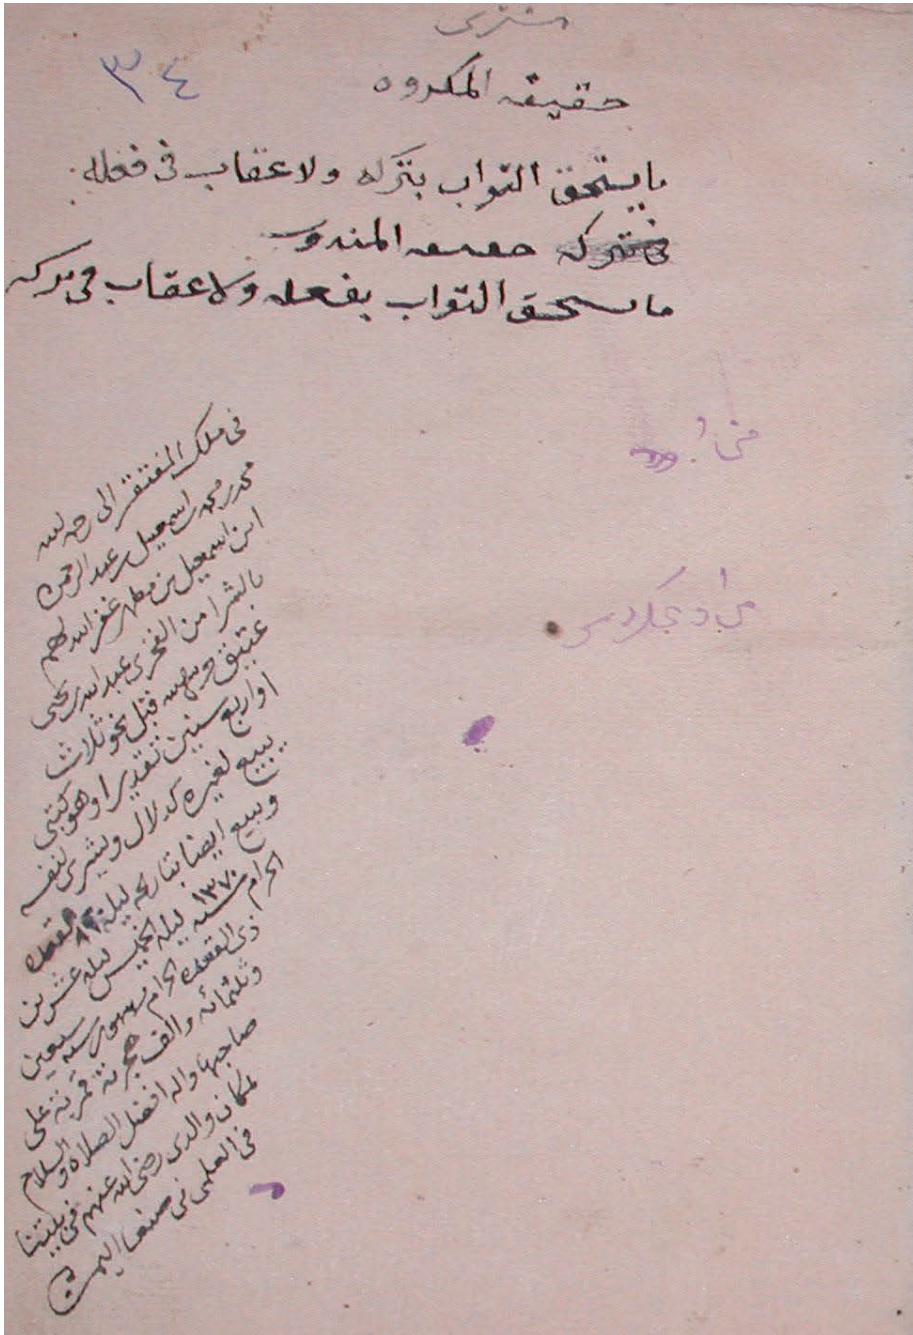 مشترى
٣٤
حقيقه المكروه
ما يستحق الثواب بتركه ولا عقاب فى فعله
فى تركه حقيقه المندوب
ما يستحق الثواب بفعله ولا عقاب فى تركه
فى ملك المفتقر الى رحمة الله
محمد بن محمد بن اسمعيل بن عبد الرحمن
ابن اسمعيل بن مطهر غفر الله لهم
بالشرا من الفخرى عبد الله بن يحيى
عتيق قبل نحو ثلاث
او اربع سنين تقديرا وهو كتبى
يبيع لغيره كدلال ويشرى لنفسه
ويبيع ايضا بتاريخه ليلة ٢٠ القعدة
الحرام سنه ١٣٧٠ ليلة الخميس ليلة عشرين
ذى القعدة الحرام سنة سبعين
وثلثمائه والف هجرية قمرية على
صاحبها واله افضل الصلاة والسلام
لمكان والدى رضى الله عنهم فى بيتنا
فى العلمى فى صنعا اليمن